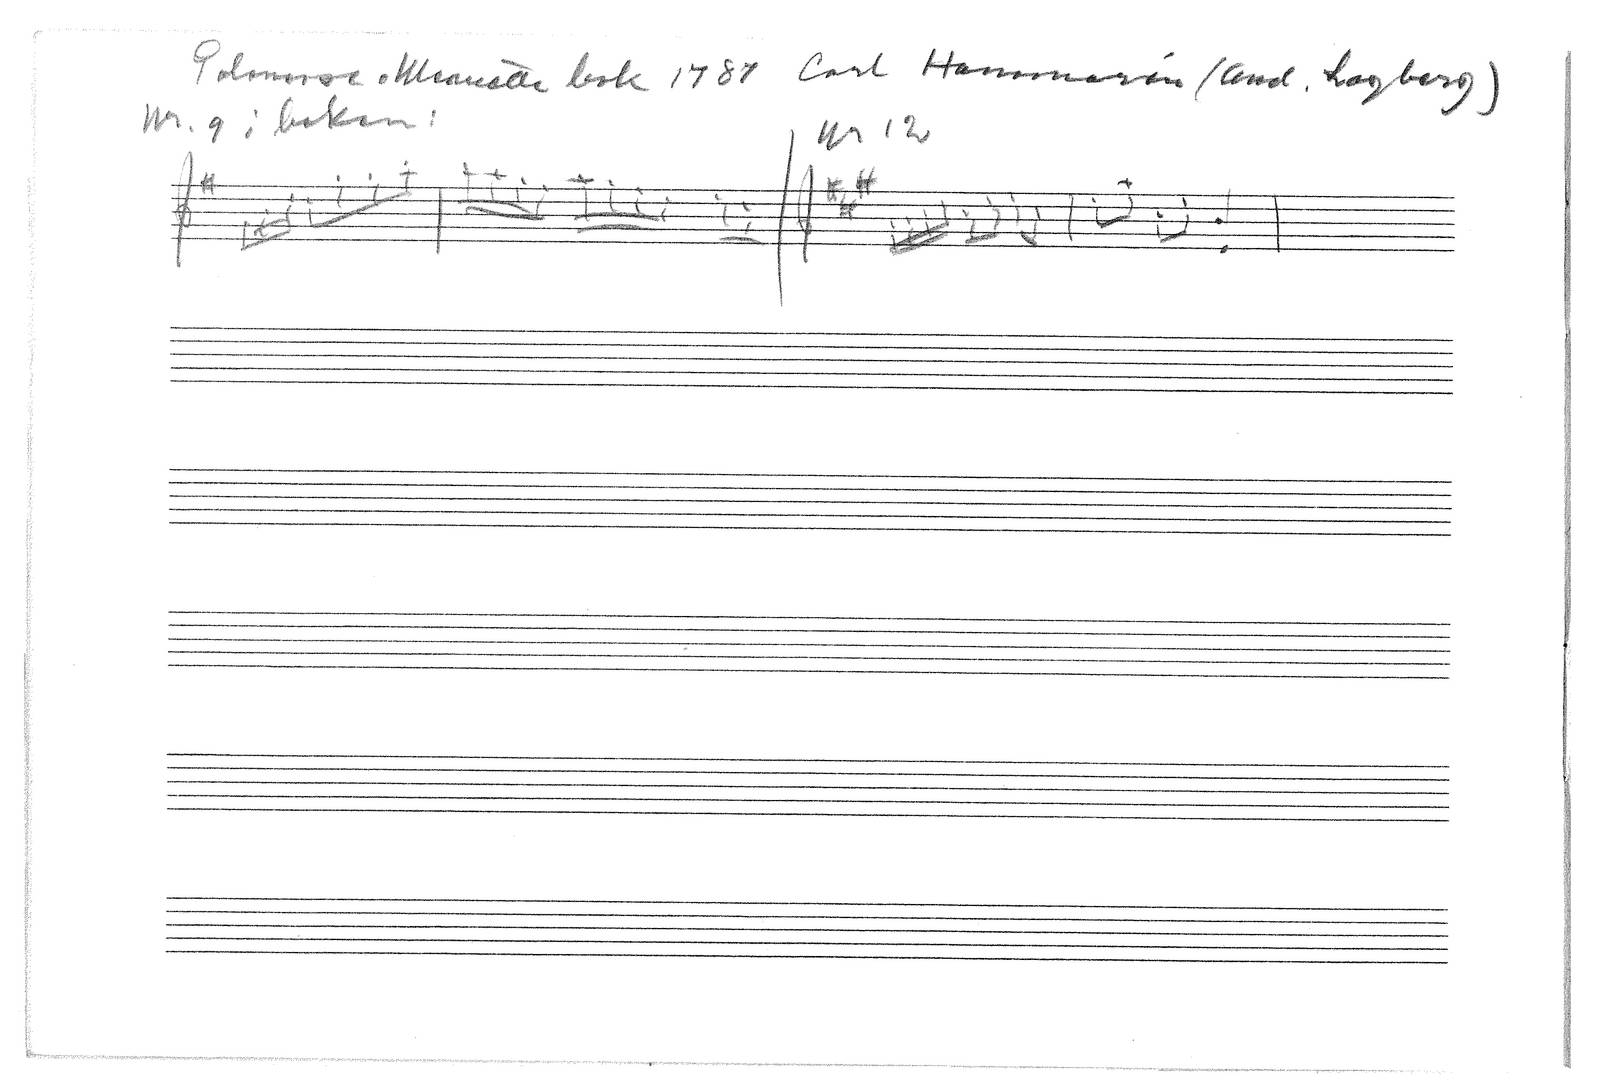 Polonesse o Menuette bok 1787 Carl Hammarén (And. Lagberg)
Nr. 9 i boken:
Nr 12